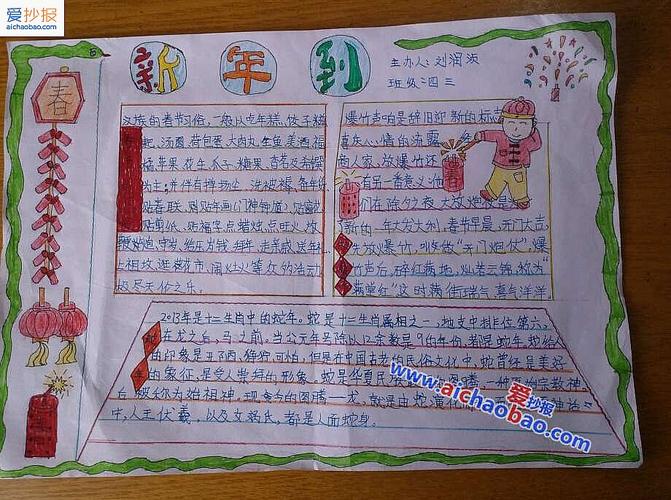 爱抄报
www.aichaobao.com
新年到
主办人:刘润滨
班级:四三
春
汉族的春节习俗,一般以吃年糕、饺子、糍
粑、汤圆、荷包蛋、大肉丸、全鱼、美酒、福
橘、苹果、花生、瓜子、糖果、香茗及肴馔
为主;并伴有掸扬尘、洗被褥、备年
贴春联、贴年画、
贴剪纸、贴福字、点蜡烛、点旺火、放
鞭炮、守岁、给压岁钱、拜年、走亲戚、送年
上祖坟、逛花市、闹社火等众多活动
极尽天伦之乐。
爆竹声响是辞旧迎新的标志
喜庆心情的流露
商人家,放爆竹还
有另一番意义他
们在除夕之夜大放炮仗是为
新的一年大发大利,春节早晨,开门大吉,
先放爆竹,叫做“开门炮仗”,爆
竹声后,碎红满地,灿若云锦,称为“
满堂红”。这时满街瑞气,喜气洋洋
2013年是十二生肖中的蛇年。蛇是十二生肖属相之一,地支中排位第六。
在龙之后,马之前,当公元年号除以12余数是9的年份,都是蛇年。蛇给人
的印象是丑陋、狰狞可怕,但是在中国古老的民俗文化中,蛇曾经是美好
的象征,是受人崇拜的形象。蛇是华夏民族
被称为始祖神,现今的图腾一龙,就是由蛇演化
中,人王伏羲,以及女娲氏,都是人面蛇身。
爱抄报
www.aichaobao.com